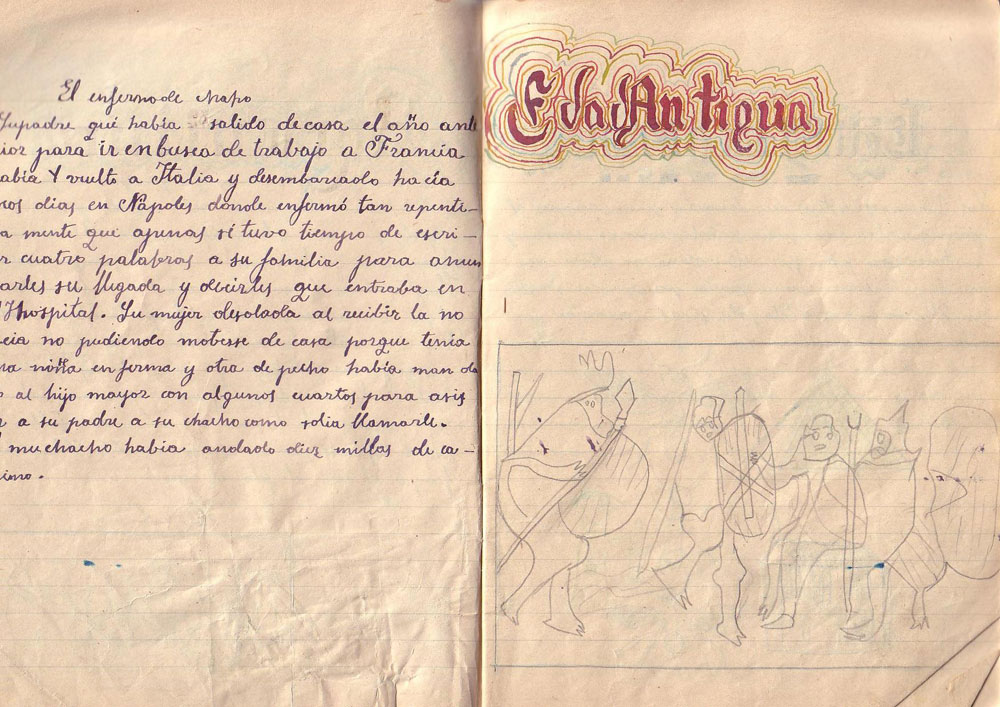 El enfermo de Naho
Supadre qué había salido de casa el año ante
ior para ir en busca de trabajo a Francia
abía Y vuelto a Italia y desembarcado hacía
nos dias en Nápoles donde enfermó tan repenti-
a mente que apenas sí tuvo tiempo de escri-
r cuatro palabras a su familia para anun
arles su llegada y decirles que entraba en
Hospital. Su mujer desolada al recibir la no
cia no pudiendo mobesse de casa porque tenía
na niña en ferma y otra de pecho había man da
o al hijo mayor con algunos cuartos para asis
r a su padre a su chacho como solia llamarle.
l muchacho había andado diez millas de ca-
ino.
Edad Antigua